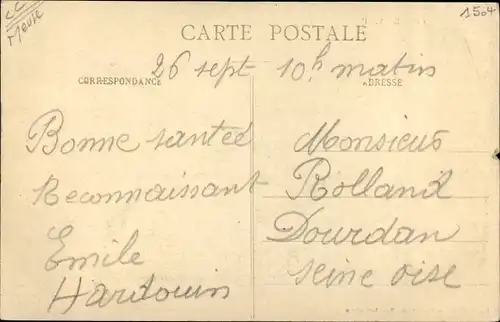 CC
Meuse
1504
CARTE POSTALE
26 sept 10h matin
CORRESPONDANCE
ADRESSE
Bonne santée
Reconnaissant
Emile
Hardouin
Monsieur
Rolland
Dourdan
seine oise